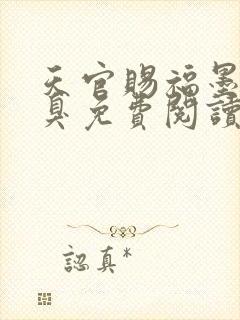 天官賜福墨
真免費閱讀
認真*